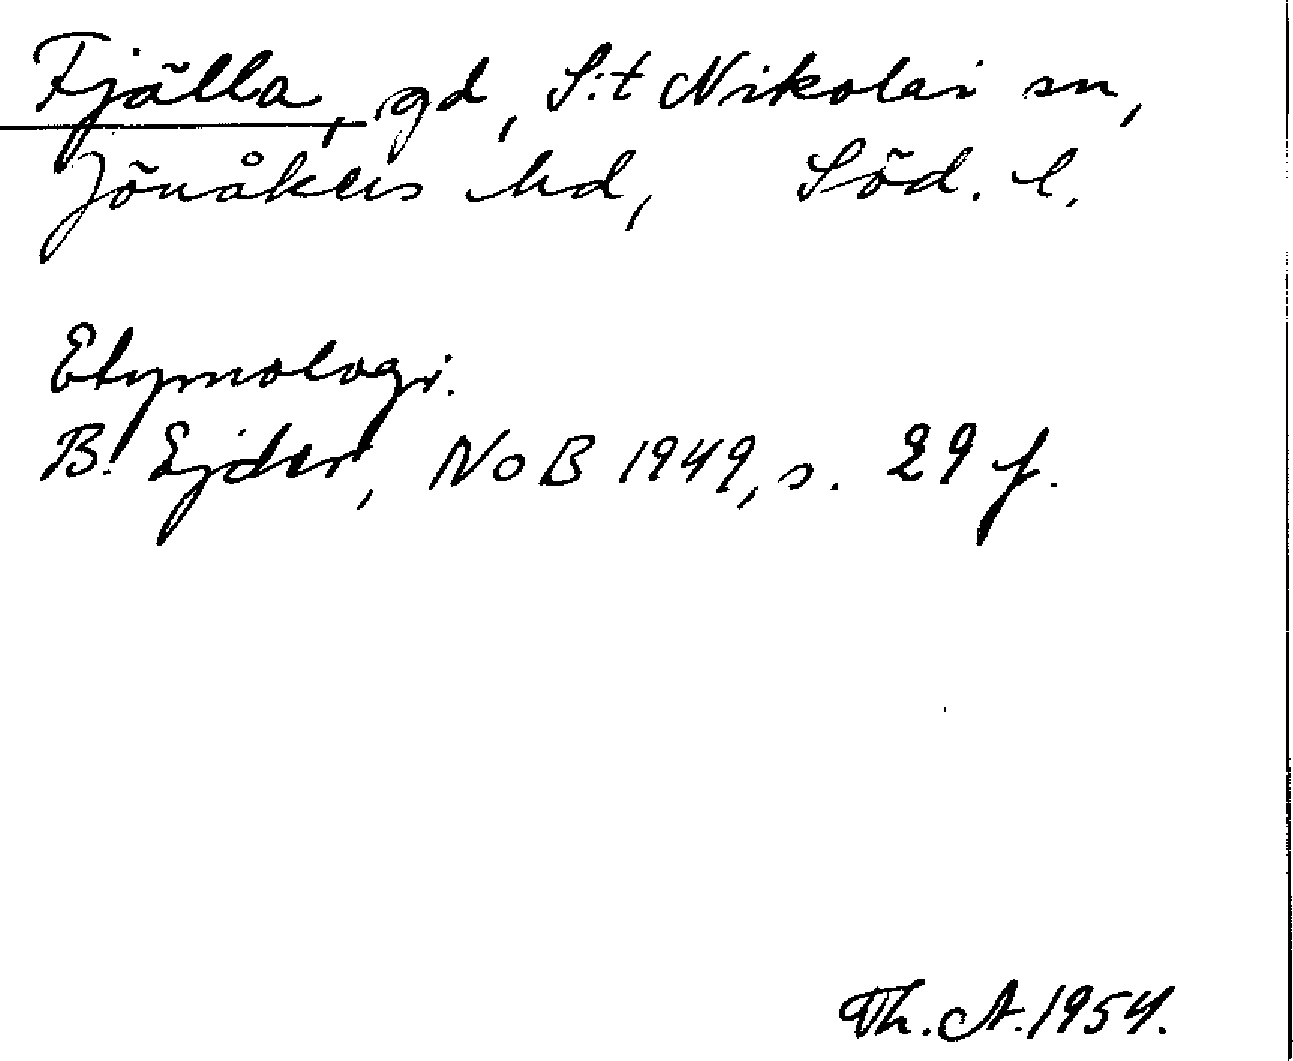 Fjälla, gd, S:t Nikolai sn,
Jönåkers hd, Söd. l.
Etymologi.
B. Ejder, NoB 1949, s. 29 f.
Th. A. 1954.